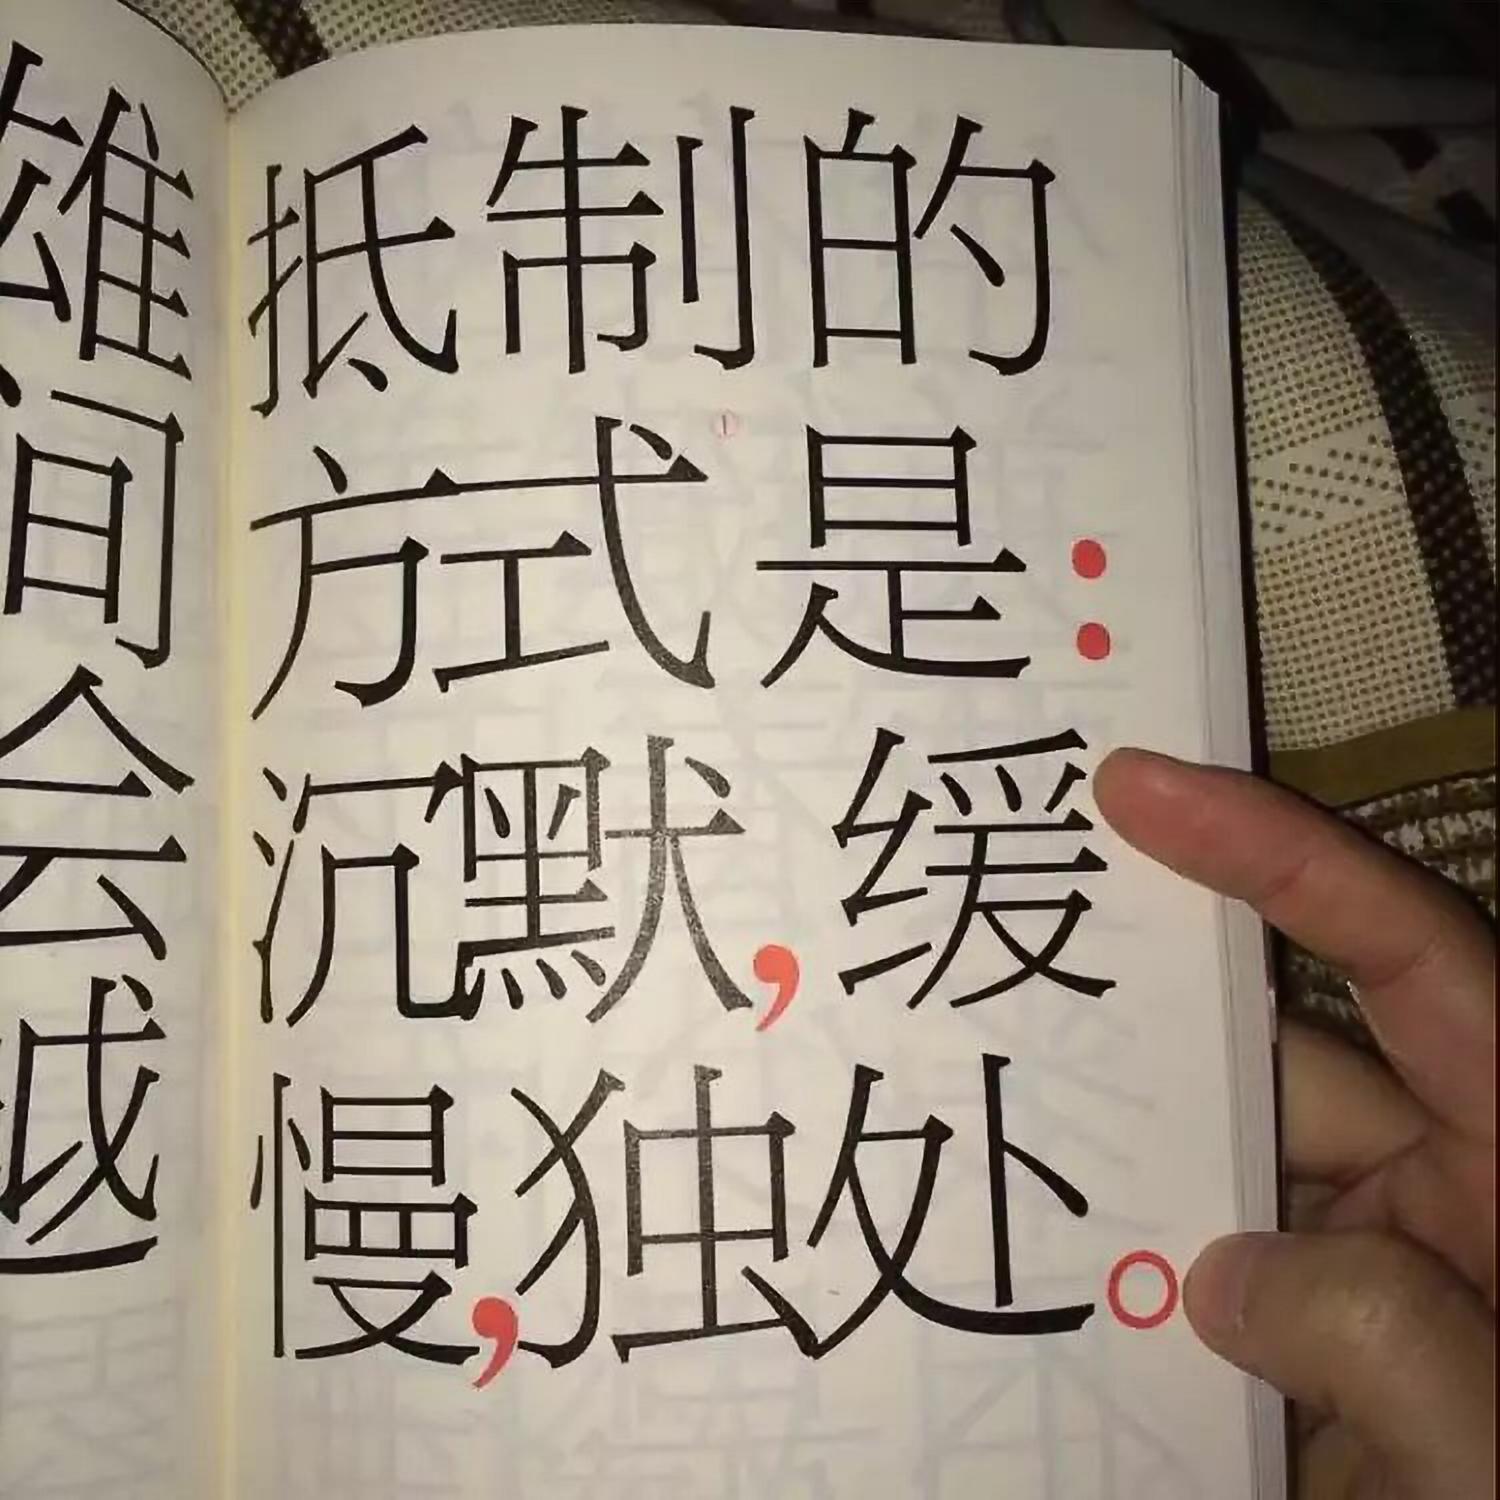 雄
间
会
越
抵制的
方式是:
沉默,缓
慢,独处。